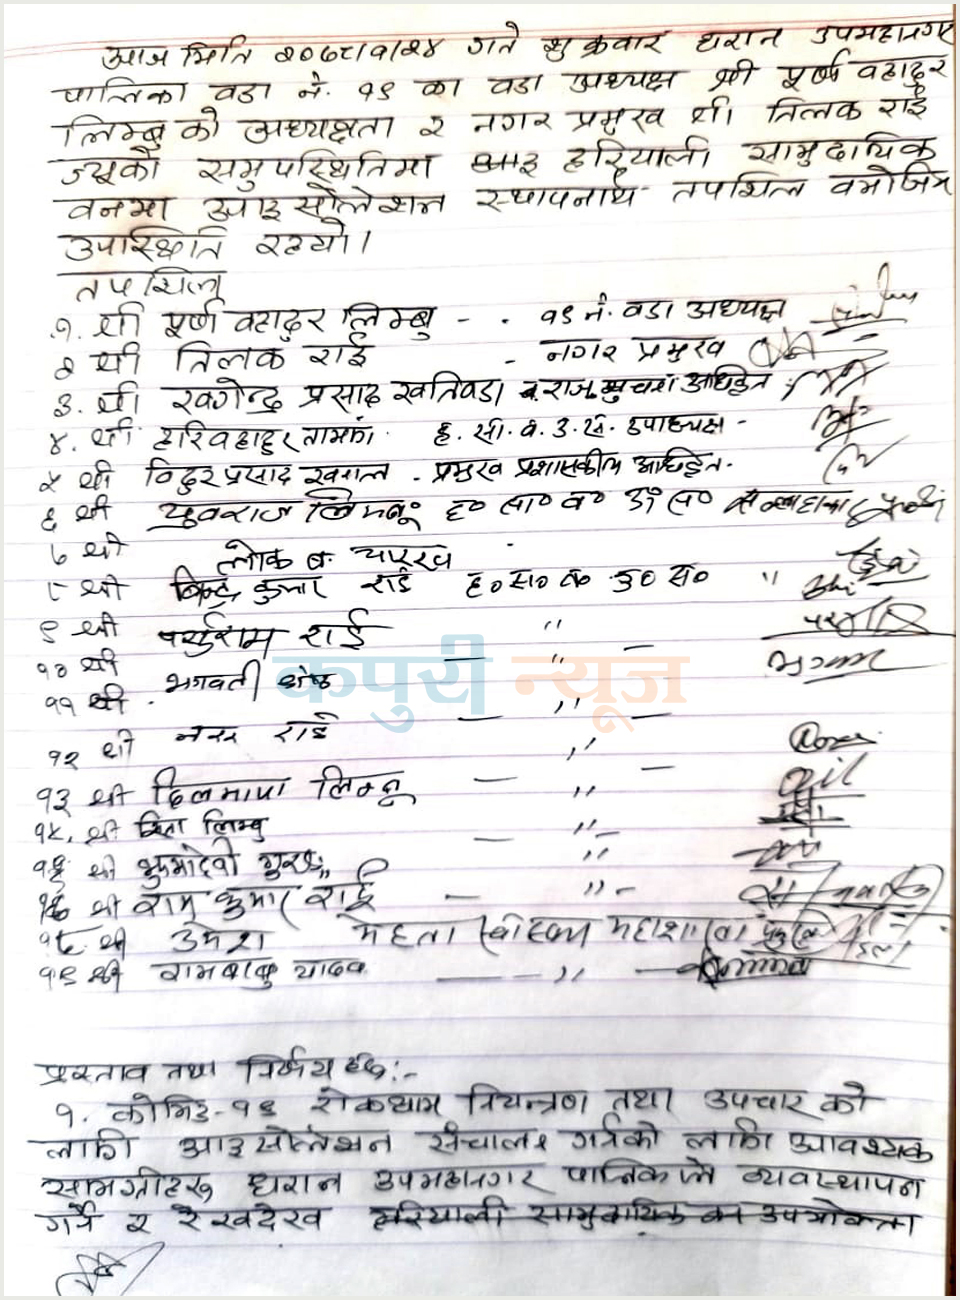 आज मिति २०७८/१/२४ गते शुक्रवार धरान उपमहानगर
पालिका वडा नं. १९ का वडा अध्यक्ष श्री पूर्ण बहादुर
लिम्बु को अध्यक्षता र नगर प्रमुख श्री तिलक राई
ज्यूको समुपस्थितिमा हरियाली सामुदायिक
वनमा आइसोलेशन स्थापनार्थ तपशिल बमोजिम
उपस्थिति रहयो।
तपशिल
१. श्री पूर्ण बहादुर लिम्बु - . १९ नं. वडा अध्यक्ष
२ श्री तिलक राई - नगर प्रमुख
३. श्री खगेन्द्र प्रसाद खतिवडा
४. श्री हरिबहादुर तामाङ ह. सा. व. उ. स. उपाध्यक्ष -
५ श्री विदुर प्रसाद खनाल . प्रमुख प्रशासकीय अधिकृत.
६ श्री युवराज लिम्बू ह० सा० व० उ० स०
७ श्री लोक ब.
८ श्री कुमार राई ह० स० व० उ० स० "
९ श्री पर्शुराम राई "
१० श्री भगवती श्रेष्ठ — " —
११ श्री राई — " —
१२ श्री "
१३ श्री दिलमाया लिम्बू — " —
१४. श्री लिम्बु — " –
१५ श्री झुमादेवी गुरुङ "
१६ श्री राम कुमार राई — " -
१८ श्री उमेश मेहता
१९ श्री रामबाबु यादव — - " —
कपुरी न्यूज
प्रस्ताव तथा निर्णय हरु :-
१. कोभिड-१९ रोकथाम नियन्त्रण तथा उपचार को
लागी आइसोलेशन संचालन गर्नको लागी आवश्यक
सामग्रीहरु धरान उपमहानगर पालिकाले व्यवस्थापन
गर्ने र रेखदेख हरियाली सामुदायिक वन उपभोक्ता